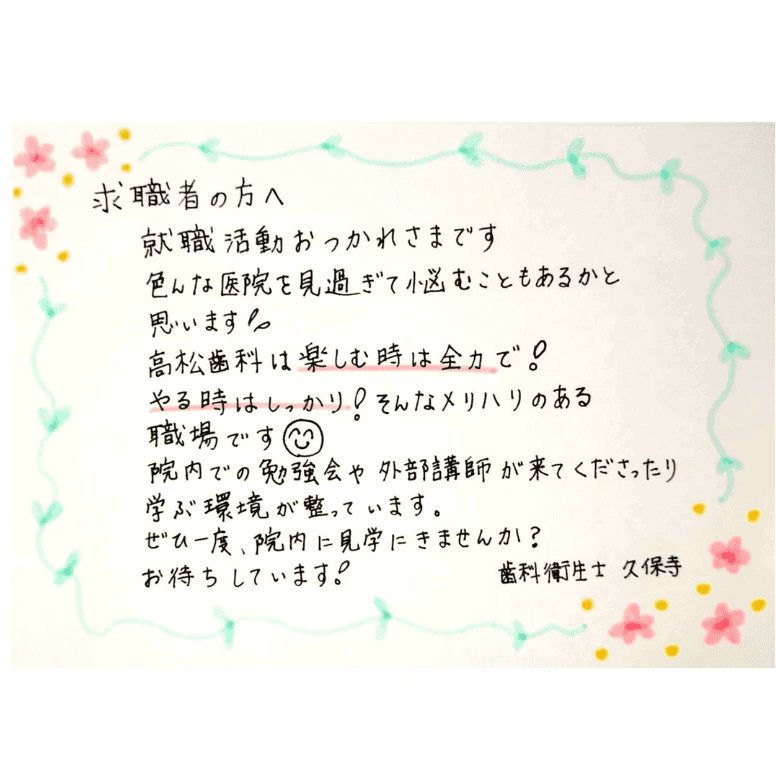 求職者の方へ
就職活動おつかれさまです
色んな医院を見過ぎて悩むこともあるかと
思います
高松歯科は楽しむ時は全力で！
やる時はしっかり！そんなメリハリのある
職場です
院内での勉強会や外部講師が来てくださったり
学ぶ環境が整っています。
ぜひ一度、院内に見学にきませんか？
お待ちしています！
歯科衛生士 久保寺